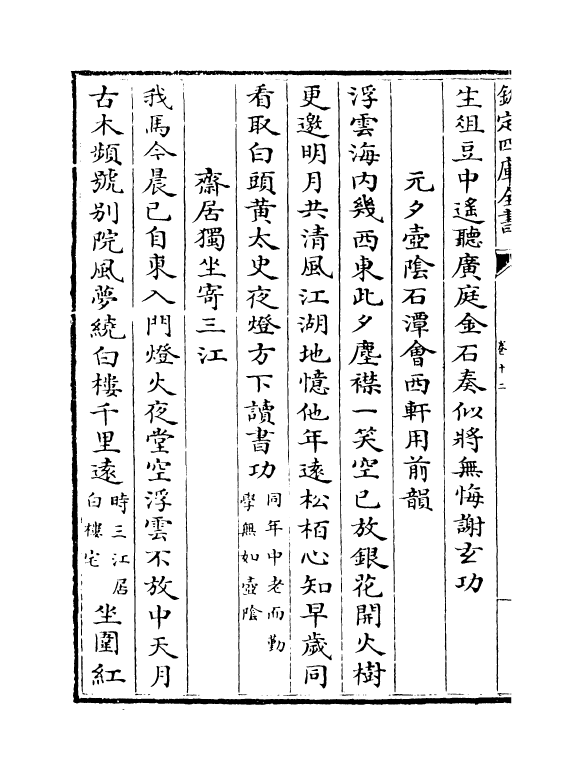 欽定四庫全書
卷十二
生俎豆中遙聽廣庭金石奏似將無悔謝玄功
元夕壺陰石潭會西軒用前韻
浮雲海内幾西東此夕塵襟一笑空已放銀花開火樹
更邀明月共清風江湖地憶他年遠松栢心知早歲同
看取白頭黄太史夜燈方下讀書功同年中老而勤學無如壺陰
齋居獨坐寄三江
我馬今晨已自東入門燈火夜堂空浮雲不放中天月
古木頻號别院風夢繞白樓千里遠時三江居白樓宅坐圍紅